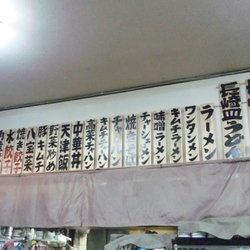 長崎皿うどん
ラーメン
ワンタンメン
キムチラーメン
味噌ラーメン
チャーシューメン
焼きそば
チャーハン
キムチチャーハン
高菜チャーハン
中華丼
天津飯
野菜炒め
豚キムチ
八宝菜
焼き餃子
水餃子